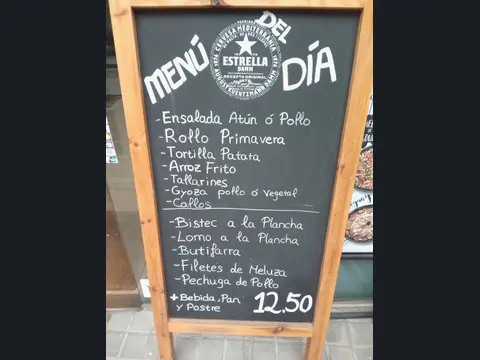 MENÚ DEL DÍA
CERVESA MEDITERRÀNIA
ESTRELLA
DAMM
RECEPTA ORIGINAL
AUGUST KUENTZMANN DAMM
1876
- Ensalada Atún ó Pollo
- Rollo Primavera
- Tortilla Patata
- Arroz Frito
- Tallarines
- Gyoza pollo ó vegetal
- Callos
- Bistec a la Plancha
- Lomo a la Plancha
- Butifarra
- Filetes de Meluza
- Pechuga de Pollo
+ Bebida, Pan
y Postre
12,50